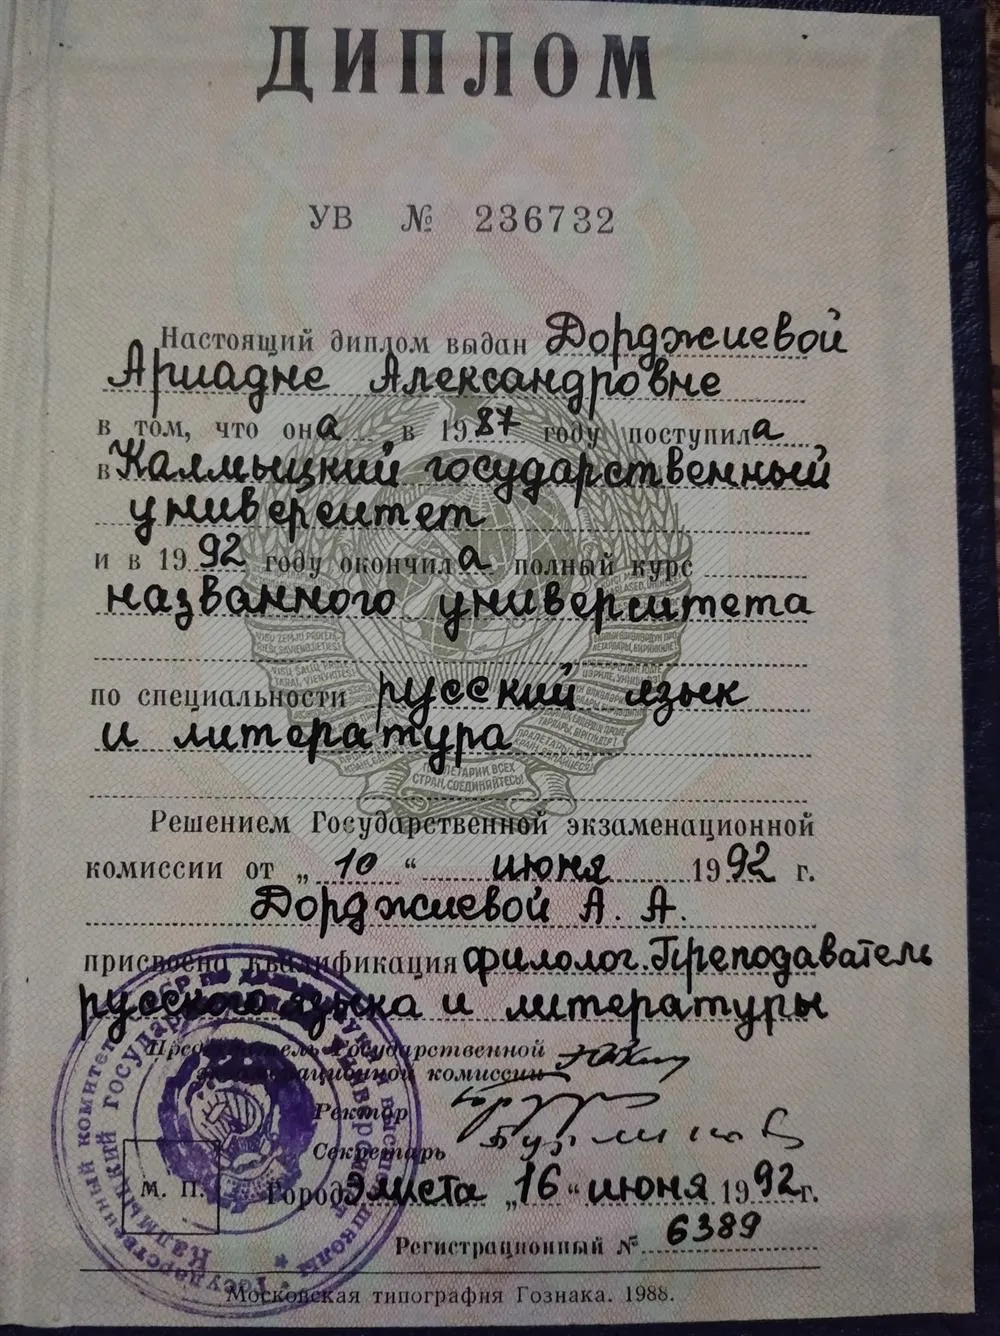 ДИПЛОМ
УВ № 236732
Настоящий диплом выдан Дорджиевой
Ариадне Александровне
в том, что она в 1987 году поступила
в Калмыцкий государственный
университет
и в 1992 году окончила полный курс
названного университета
по специальности русский язык
и литература
Решением Государственной экзаменационной
комиссии от „10“ июня 1992 г.
Дорджиевой А. А.
присвоена квалификация филолог. Преподаватель
русского языка и литературы
Председатель Государственной
экзаменационной комиссии
Ректор
Секретарь
М. П.
Город Элиста „16“ июня 1992 г.
Регистрационный № 6389
Московская типография Гознака. 1988.
ПРОЛЕТАРИИ ВСЕХ
СТРАН, СОЕДИНЯЙТЕСЬ!